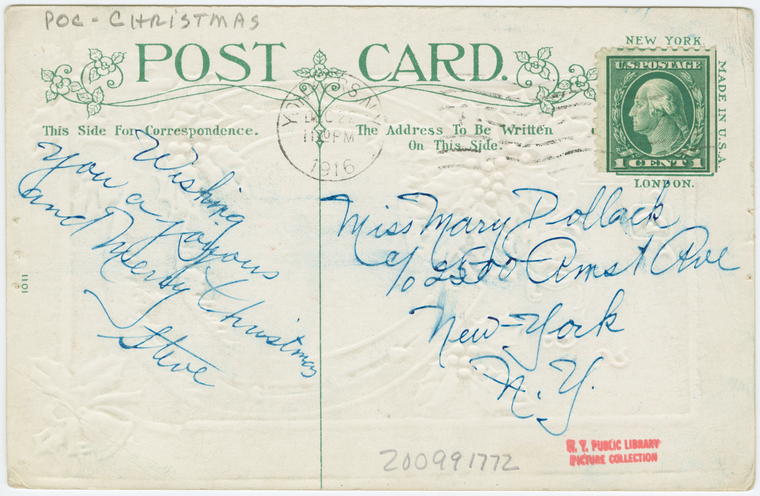 POC - CHRISTMAS
POST CARD.
NEW YORK.
U.S. POSTAGE
1 CENT 1
MADE IN U.S.A.
LONDON.
DEC 2
PM
1916
This Side For Correspondence.
The Address To Be Written
On This Side.
Wishing
You a joyous
and Merry Christmas
Steve
1011
Miss Mary Pollack
c/o 2500 Amst Ave
New-York
N.Y.
200991772
N.Y. PUBLIC LIBRARY
PICTURE COLLECTION